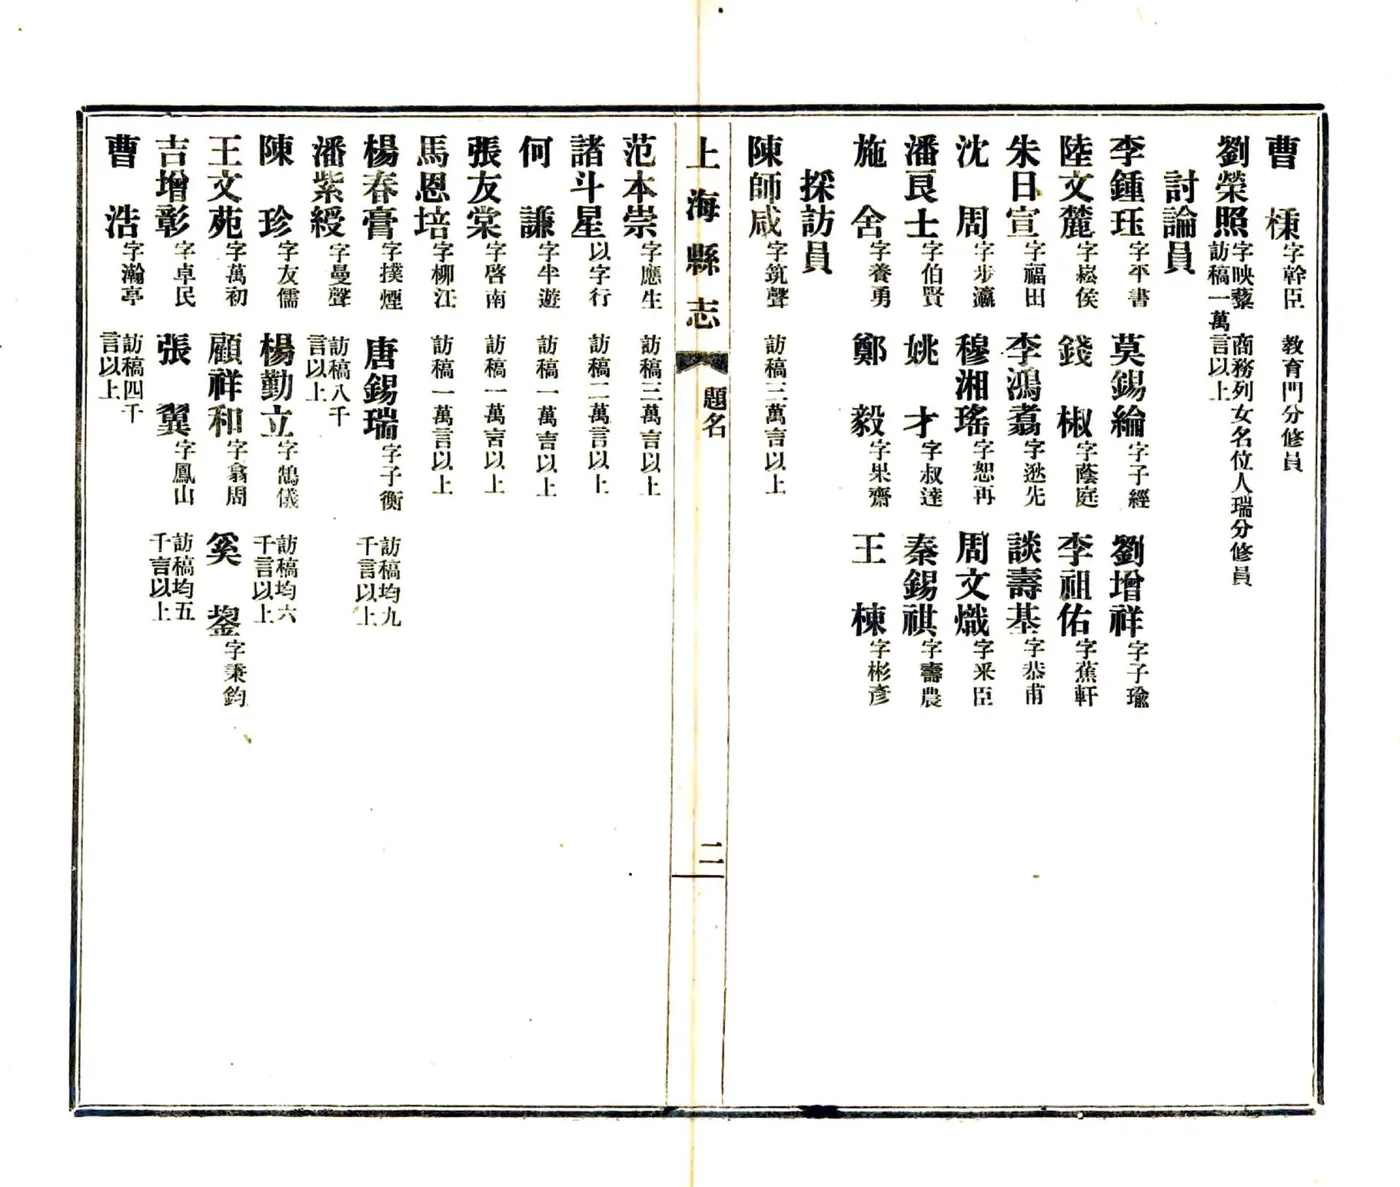 曹 㯋字幹臣 教育門分修員
劉榮照字映藜 商務列女名位人瑞分修員
訪稿一萬言以上
討論員
李鍾珏字平書 莫錫綸字子經 劉增祥字子瑜
陸文麓字崧侯 錢 椒字蔭庭 李祖佑字蕉軒
朱日宣字福田 李鴻翥字逖先 談壽基字恭甫
沈 周字步瀛 穆湘瑤字恕再 周文熾字釆臣
潘良士字伯賢 姚 才字叔達 秦錫祺字壽農
施 舍字養勇 鄭 毅字果齋 王 棟字彬彥
採訪員
陳師咸字筑聲 訪稿三萬言以上
上海縣志 題名 二
范本崇字應生 訪稿三萬言以上
諸斗星以字行 訪稿二萬言以上
何 謙字半遊 訪稿一萬言以上
張友棠字啓南 訪稿一萬言以上
馬恩培字柳江 訪稿一萬言以上
楊春膏字撲煙 唐錫瑞字子衡 訪稿均九
千言以上
潘紫綬字曼聲 訪稿八千
言以上
陳 珍字友儒 楊勤立字鵠儀 訪稿均六
千言以上
王文苑字萬初 顧祥和字翕周 奚 鋆字秉鈞
吉增彰字卓民 張 翼字鳳山 訪稿均五
千言以上
曹 浩字瀚亭 訪稿四千
言以上